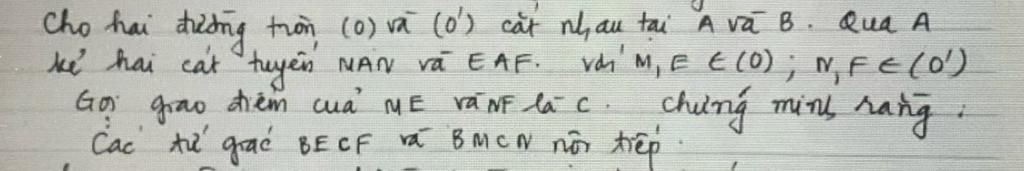 Cho hai đường tròn (O) và (O') cắt nhau tại A và B. Qua A
kẻ hai cát tuyến MAN và EAF. với M, E ∈ (O); N, F ∈ (O')
Gọi giao điểm của ME và NF là C. chứng minh rằng:
Các tứ giác BECF và BMCN nội tiếp.